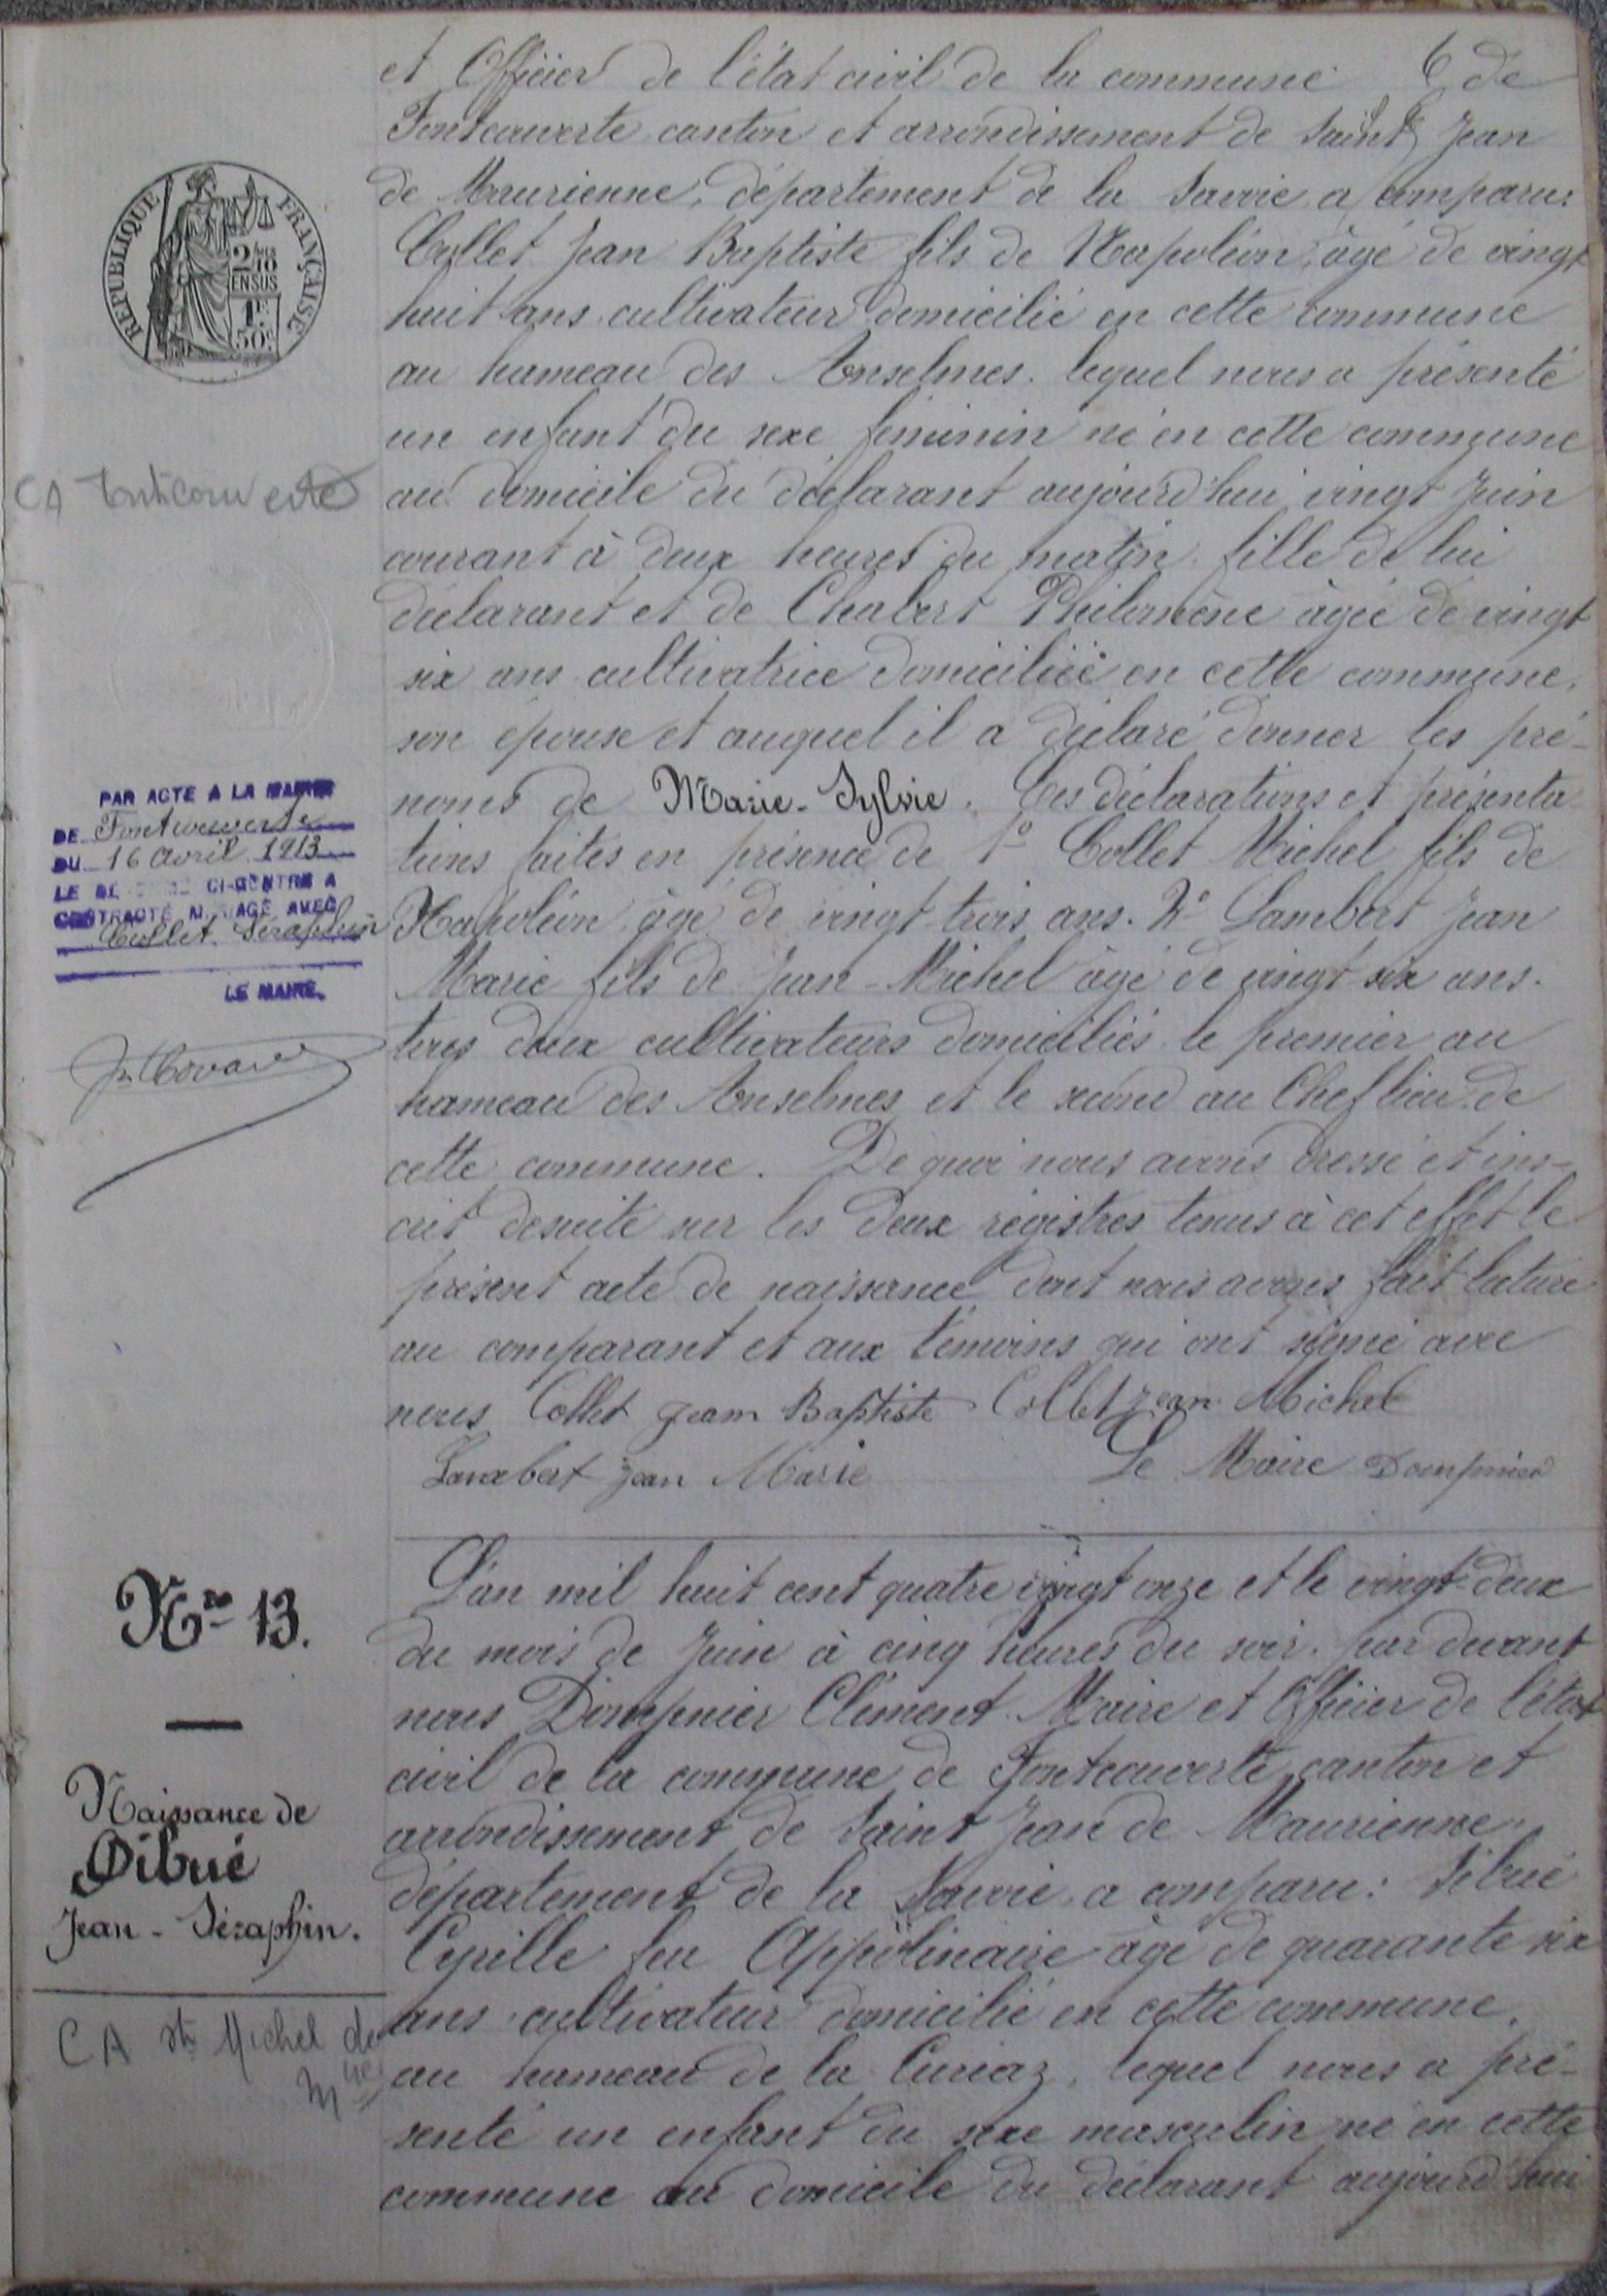 et Officier de l'état civil de la commune 6 de
Fontcouverte canton et arrondissement de Saint Jean
de Maurienne, département de la Savoie a comparu:
Collet Jean Baptiste fils de Napoléon, âgé de vingt
huit ans cultivateur domicilié en cette commune
au hameau des Anselmes. lequel nous a présenté
un enfant du sexe féminin né en cette commune
au domicile du déclarant aujourd'hui vingt Juin
courant à deux heures du matin. fille de lui
déclarant et de Chabert Philomène âgée de vingt
six ans cultivatrice domiciliée en cette commune,
son épouse et auquel il a déclaré donner les pré-
noms de Marie-Sylvie. Ces déclarations et présenta
tions faites en présence de 1° Collet Michel fils de
Napoléon âgé de vingt-trois ans. 2° Lambert Jean
Marie fils de Jean-Michel âgé de vingt-six ans.
tous deux cultivateurs domiciliés le premier au
hameau des Anselmes et le second au Chef lieu de
cette commune. De quoi nous avons dressé et ins-
crit desuite sur les deux régistres tenus à cet effet le
présent acte de naissance dont nous avons fait lecture
au comparant et aux témoins qui ont signé avec
nous Collet Jean Baptiste Collet Jean Michel
Lambert Jean Marie Le Maire Dompnier
REPUBLIQUE FRANÇAISE
2/10 EN SUS
1F 50c
CA Fontcouverte
PAR ACTE A LA MAIRIE
DE Fontcouverte
DU 16 avril 1913
LE CI-CONTRE A
CONTRACTÉ MARIAGE AVEC
Collet Séraphin
LE MAIRE,
Nro 13.
Naissance de
Sibué
Jean-Séraphin.
CA St Michel de
Mne
L'an mil huit cent quatre vingt onze et le vingt-deux
du mois de Juin à cinq heures du soir. par devant
nous Dompnier Clément Maire et Officier de l'état
civil de la commune de Fontcouverte canton et
arrondissement de Saint Jean de Maurienne,
département de la Savoie a comparu: Sibué
Cyrille feu Appolinaire âgé de quarante six
ans cultivateur domicilié en cette commune,
au hameau de la Curiaz, lequel nous a pré-
senté un enfant du sexe masculin né en cette
commune au domicile du déclarant aujourd'hui